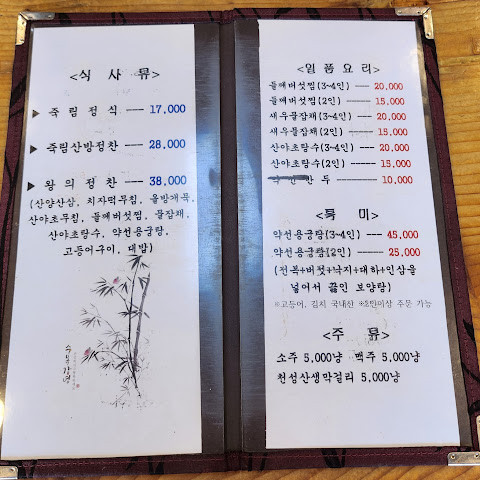 <식 사 류>
▶ 죽림정식 --- 17,000
▶ 죽림산방정찬 --- 28,000
▶ 왕의정찬 --- 38,000
(산양산삼, 치자떡무침, 올방개묵,
산야초무침, 들깨버섯찜, 물잡채,
산야초탕수, 약선용궁탕,
고등어구이, 대밥)
<일 품 요 리>
들깨버섯찜(3~4인) --- 20,000
들깨버섯찜(2인) ------ 15,000
새우물잡채(3~4인) --- 20,000
새우물잡채(2인) ------ 15,000
산야초탕수(3~4인) --- 20,000
산야초탕수(2인) ------ 15,000
만 두 ------ 10,000
<특 미>
약선용궁탕(3~4인) --- 45,000
약선용궁탕(2인) ------ 25,000
(전복+버섯+낙지+대하+인삼을
넣어서 끓인 보양탕)
※고등어, 김치 국내산 ※2인이상 주문 가능
<주 류>
소주 5,000냥 맥주 5,000냥
천성산생막걸리 5,000냥